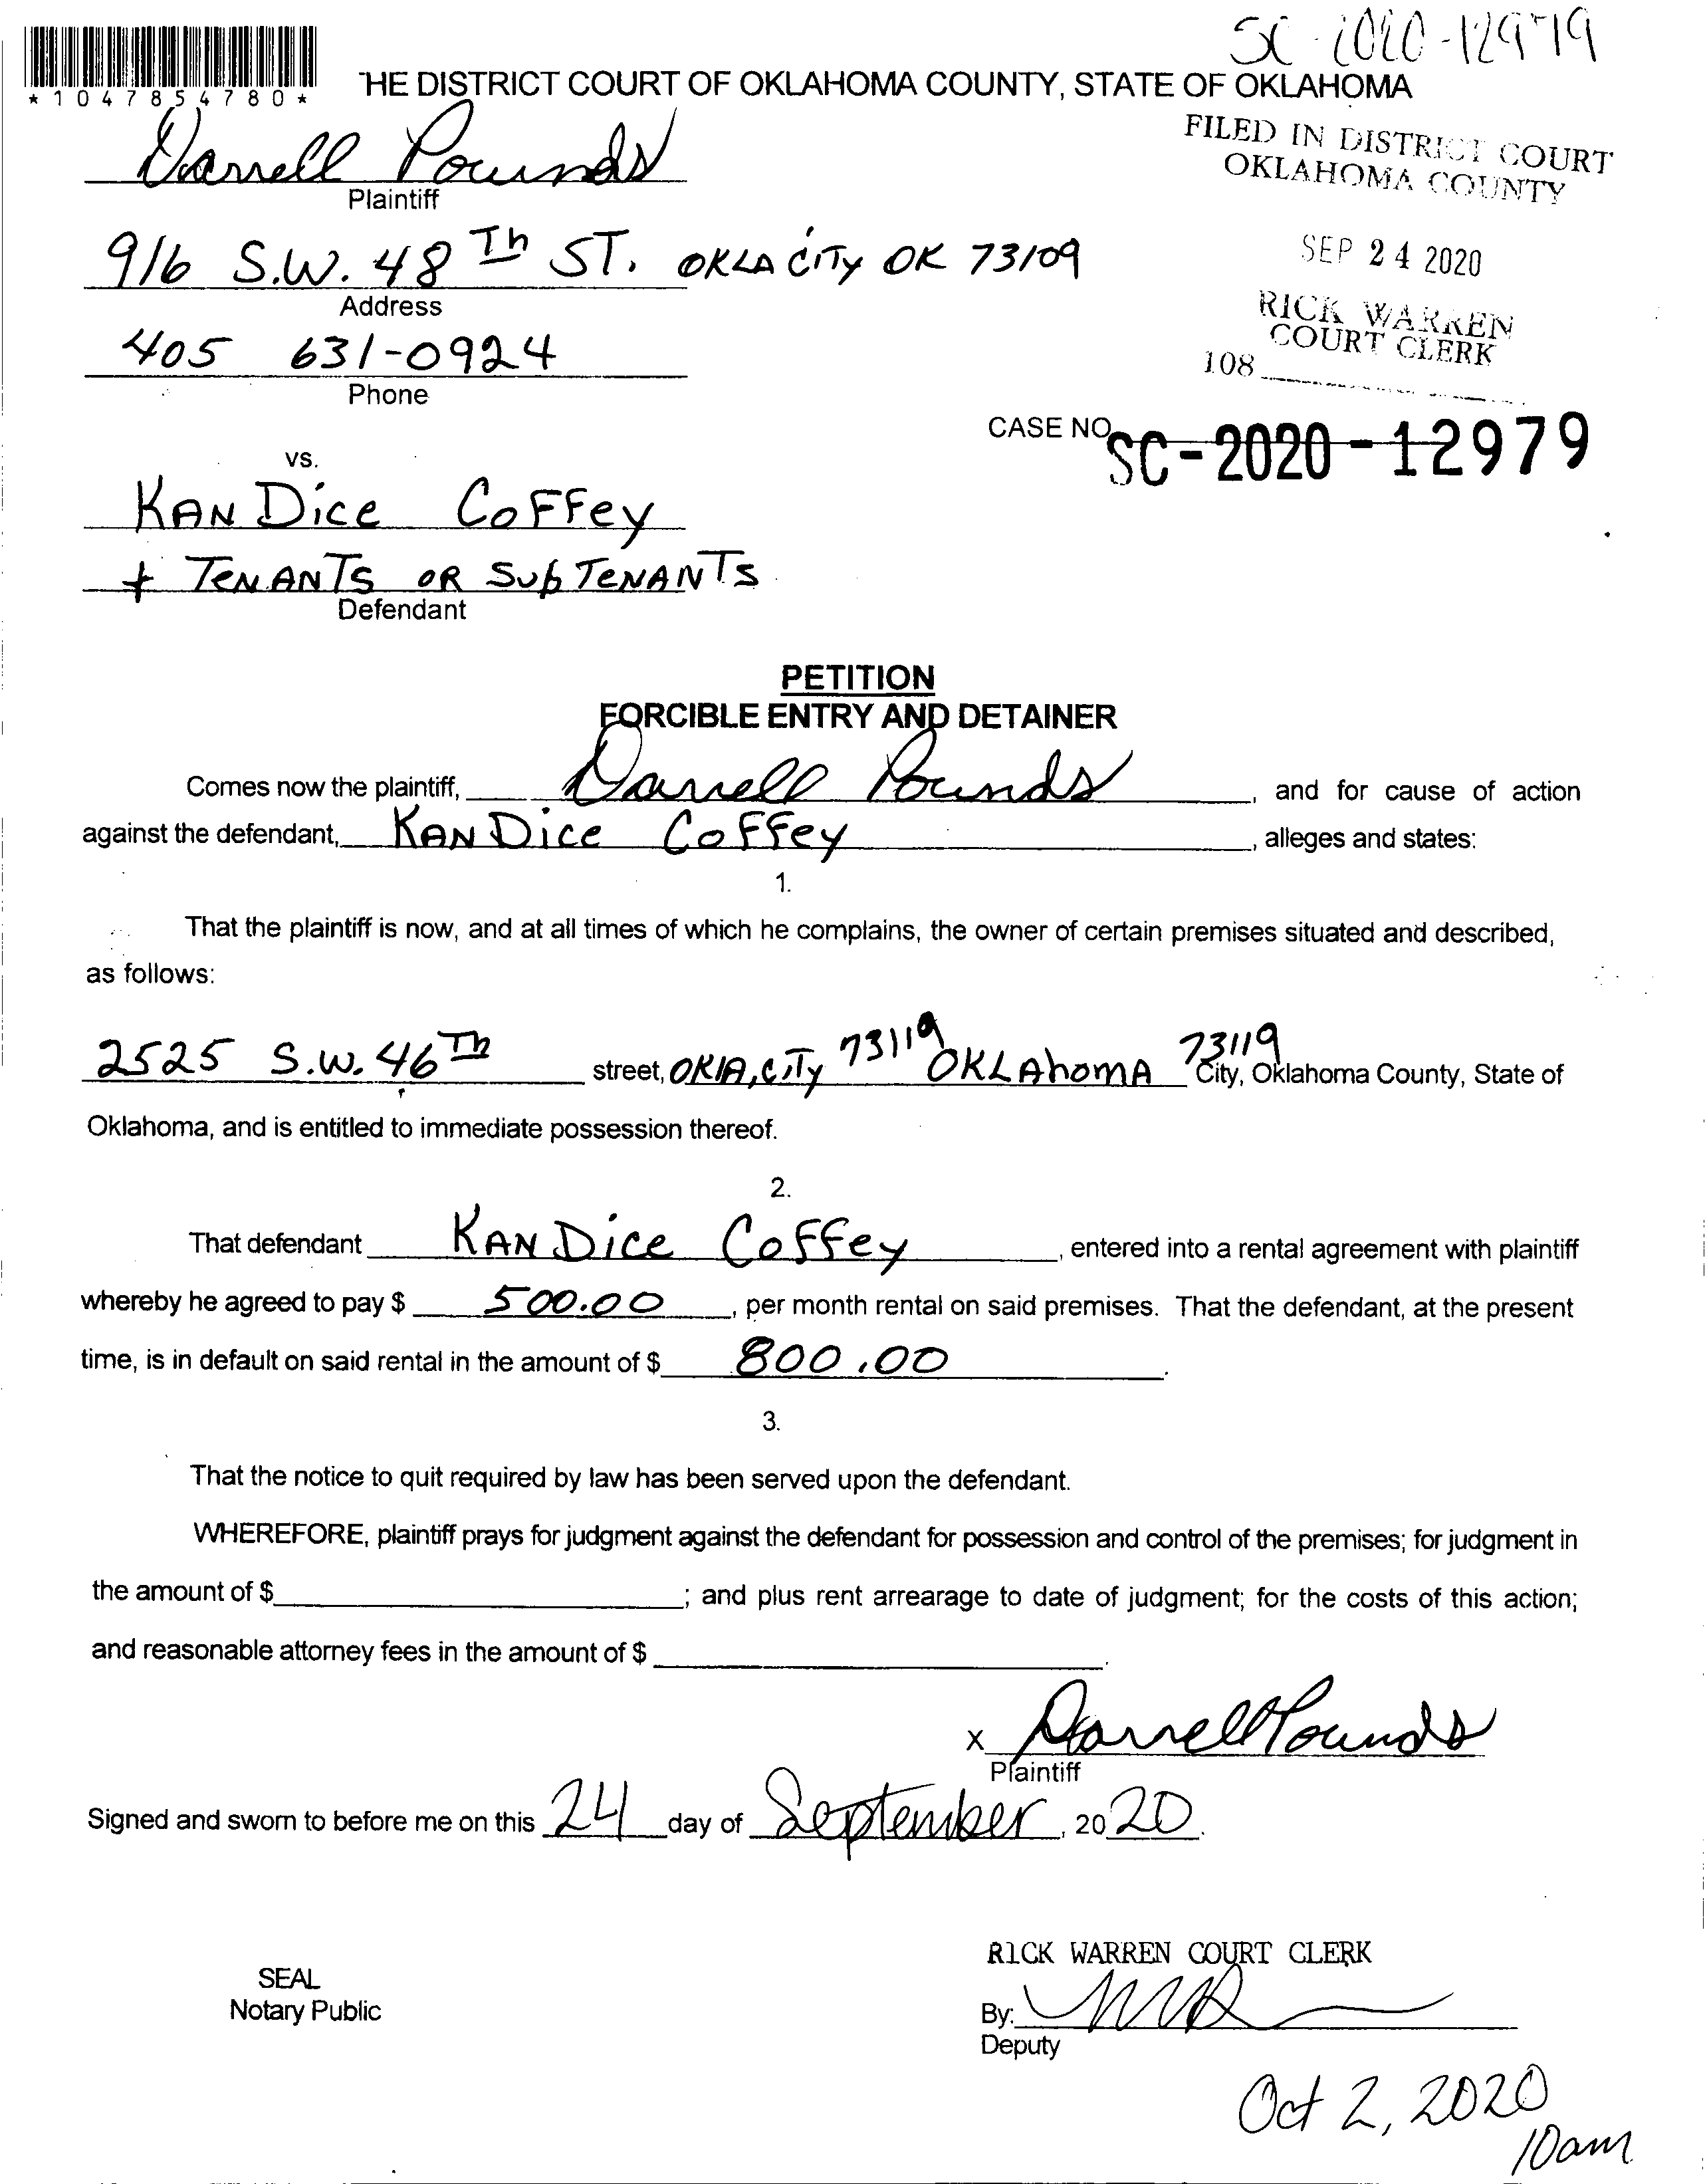 SC-2020-12979
*1047854780*
THE DISTRICT COURT OF OKLAHOMA COUNTY, STATE OF OKLAHOMA
FILED IN DISTRICT COURT
OKLAHOMA COUNTY
Darrell Pounds
Plaintiff
SEP 24 2020
916 S.W. 48 Th ST. OKLA CiTy OK 73109
Address
RICK WARREN
COURT CLERK
108
405 631-0924
Phone
CASE NO. SC-2020-12979
vs.
KANDice CoFFey
+ TeNANTS OR SubTeNANTS
Defendant
PETITION
FORCIBLE ENTRY AND DETAINER
Comes now the plaintiff, Darrell Pounds, and for cause of action
against the defendant, KANDice CoFFey, alleges and states:
1.
That the plaintiff is now, and at all times of which he complains, the owner of certain premises situated and described,
as follows:
2525 S.W. 46Th street, OKlA, CiTy 73119 OKLAhomA 73119 City, Oklahoma County, State of
Oklahoma, and is entitled to immediate possession thereof.
2.
That defendant KANDice CoFFey, entered into a rental agreement with plaintiff
whereby he agreed to pay $ 500.00, per month rental on said premises. That the defendant, at the present
time, is in default on said rental in the amount of $ 800.00.
3.
That the notice to quit required by law has been served upon the defendant.
WHEREFORE, plaintiff prays for judgment against the defendant for possession and control of the premises; for judgment in
the amount of $; and plus rent arrearage to date of judgment; for the costs of this action;
and reasonable attorney fees in the amount of $.
X Darrell Pounds
Plaintiff
Signed and sworn to before me on this 24 day of September, 2020.
RICK WARREN COURT CLERK
SEAL
Notary Public
By:
Deputy
Oct 2, 2020
10am